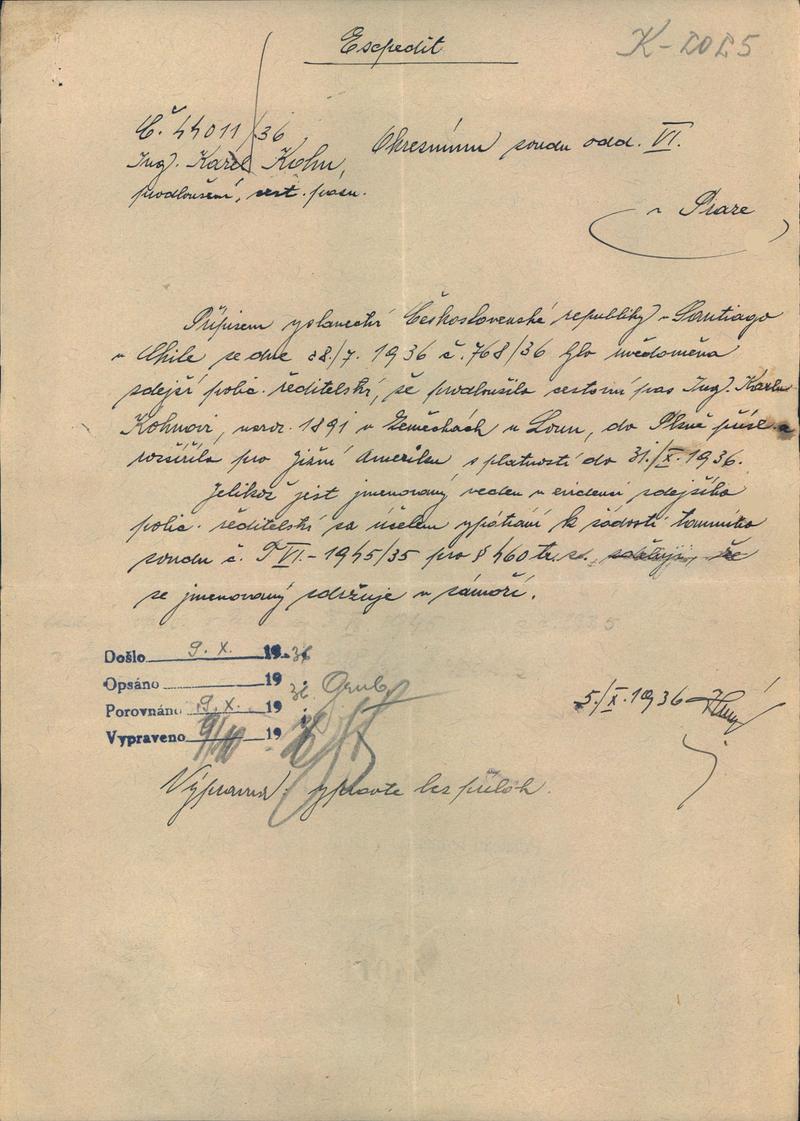 Expedit
K-2025
Č. 44011/36
Ing. Karel Kohn,
prodloužení cest. pasu.
Okresnímu soudu odd. VI.
v Praze
Přípisem vyslanectví Československé republiky v Santiago
v Chile ze dne 28./7. 1936 č. 768/36 bylo uvědoměna
zdejší polic. ředitelství, že prodloužila cestovní pas Ing. Karlu
Kohnovi, naroz. 1891 v Zeměchách u Loun, do Plzně přísl. a
rozšířila pro Jižní Ameriku s platností do 31./X. 1936.
Jelikož jest jmenovaný veden v evidenci zdejšího
polic. ředitelství za účelem vypátrání k žádosti tamního
soudu č. T VI.- 1945/35 pro § 460 tr. z., sděluji, že
se jmenovaný zdržuje v zámoří.
Došlo 9. X. 1936
Opsáno 19
Porovnáno 9. X. 1936
Vypraveno 9/10 19
5./X. 1936
Výpravna: vypravte bez příloh.